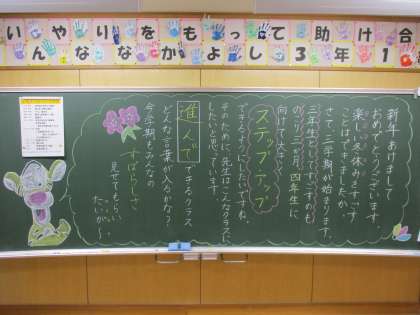 いやりをもって助け合
みんななかよし3年1
新年あけまして
おめでとうございます。
楽しい冬休みをすごす
ことはできましたか。
さて、三学期が始まります。
三年生としてすごすのも
のこり三か月。四年生に
向けて大きく
ステップアップ
できるようにしたいですね。
そのために、先生はこんなクラスに
したいと思っています。
進んで できるクラス
どんな言葉が入るかな？
今学期もみんなの
すばらしさ
見せてもらい
たいな〜